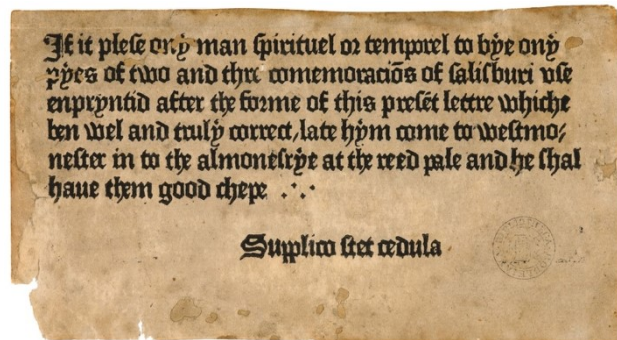 If it plese ony man spirituel or temporel to bye ony
pyes of two and thre comemoraciõs of salisburi vse
enpryntid after the forme of this presẽt lettre whiche
ben wel and truly correct, late hym come to westmo⸗
nester in to the almonesrye at the reed pale and he shal
haue them good chepe .·.·
Supplico stet cedula